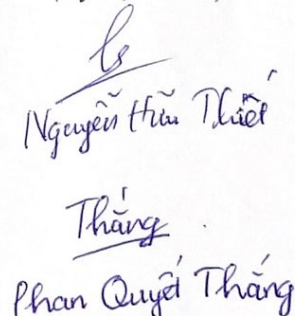 Nguyễn Hữu Thiết
Thắng
Phan Quyết Thắng